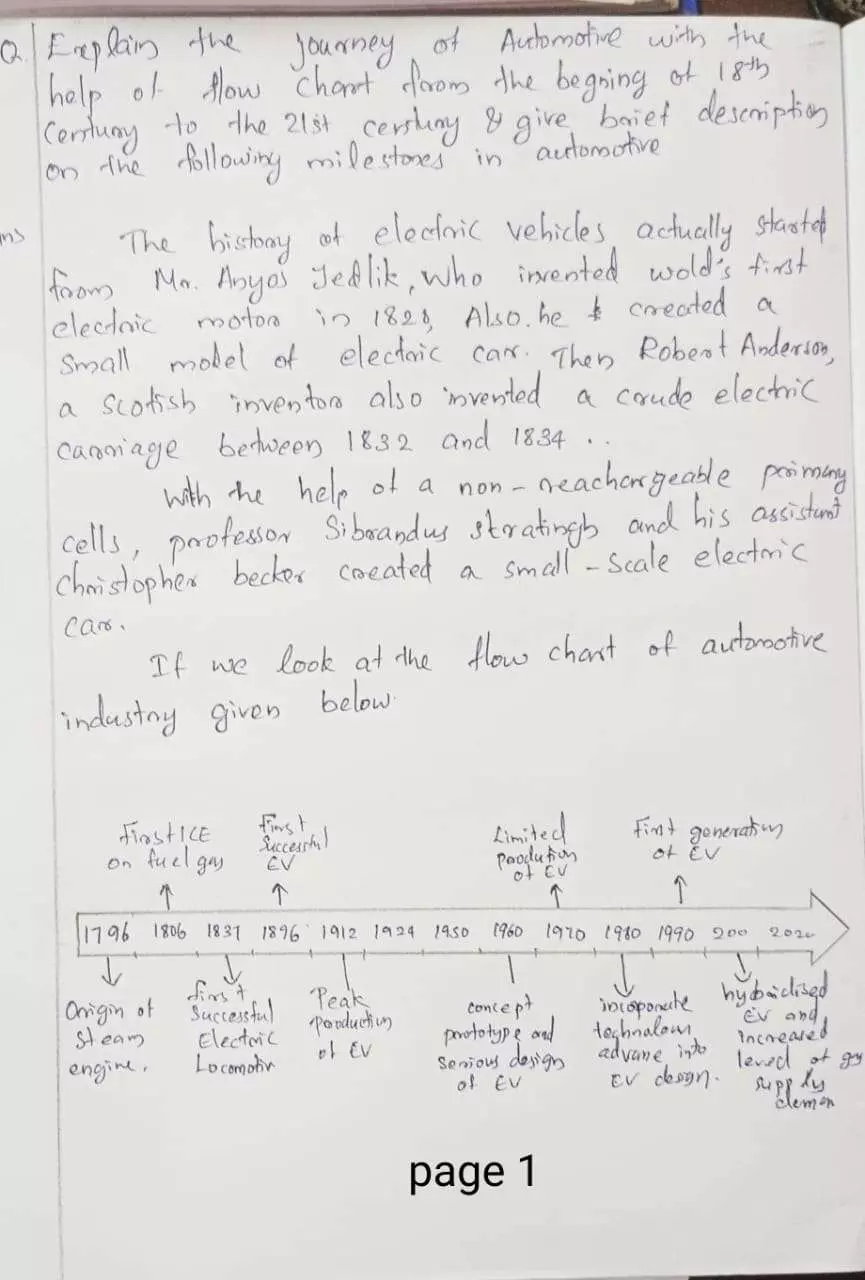 Q. Explain the journey of Automotive with the
help of flow chart from the begning of 18th
Century to the 21st century & give brief description
on the following milestones in automotive
ans
The history of electric vehicles actually started
from Mr. Anyos Jedlik, who invented wold's first
electric motor in 1828, Also. he created a
small model of electric car. Then Robert Anderson,
a scotish inventor also invented a crude electric
carriage between 1832 and 1834 ..
With the help of a non-reachargeable primary
cells, professor Sibrandus stratingh and his assistant
Christopher becker created a small-scale electric
car.
If we look at the flow chart of automotive
industry given below.
First ICE
on fuel gas
First
Successful
EV
Limited
Prodution
of EV
First generation
of EV
1796 1806 1837 1896 1912 1924 1950 1960 1970 1980 1990 200 2020
Origin of
steam
engine.
first
Successful
Electric
Locomotiv
Peak
production
of EV
concept
prototype and
Serious design
of EV
incoporate
advane into
EV design.
hybridised
EV and
increased
level of gas
supply
deman
page 1